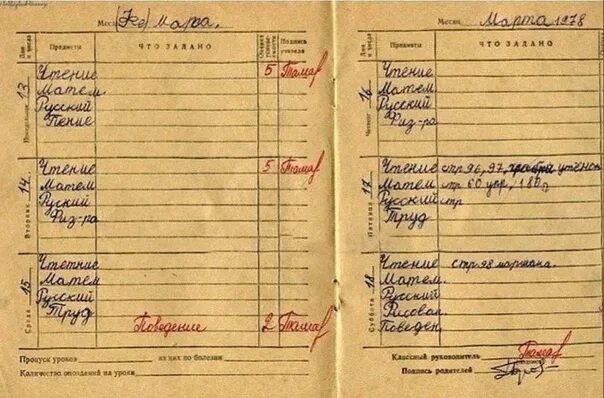 Мес (Не) Марта.
Дни и числа Предметы ЧТО ЗАДАНО Оценка успеваемости Подпись учителя
Понедельник 13
Чтение 5 Тамар
Матем.
Русский
Пение
Вторник 14
Чтение 5 Тамар
Матем
Руский
Физ-ра
Среда 15
Чтетние
Матем
Русский
Труд Поведение 2 Тамар
Пропуск уроков из них по болезни
Количество опозданий на уроки
Месяц Марта 1978
Дни и числа Предметы ЧТО ЗАДАНО
Четверг 16
Чтение
Матем
Русский
Физ-ра
Пятница 17
Чтение стр 96, 97,
Матем стр 60 упр, 180
Русский стр
Труд
Суббота 18
Чтение стр 98
Матем
Русский
Рисован
Поведен
Классный руководитель Тамар
Подпись родителей